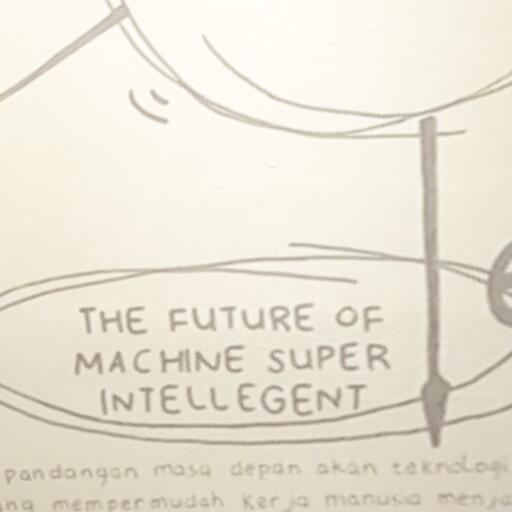 THE FUTURE OF
MACHINE SUPER
INTELLEGENT
pandangan masa depan akan teknologi
mempermudah kerja manusia